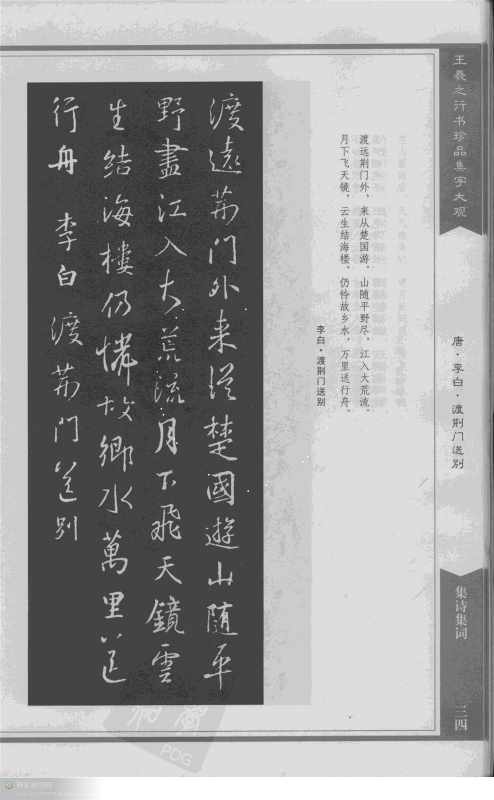 王羲之行书珍品集字大观
唐·李白·渡荆门送别
集诗集词
三四
渡远荆门外，来从楚国游。山随平野尽，江入大荒流。
月下飞天镜，云生结海楼。仍怜故乡水，万里送行舟。
李白·渡荆门送别
渡遠荆门外来從楚國遊山随平
野盡江入大荒流月下飛天鏡雲
生結海樓仍憐故鄉水萬里送
行舟 李白渡荆门送别
PDG